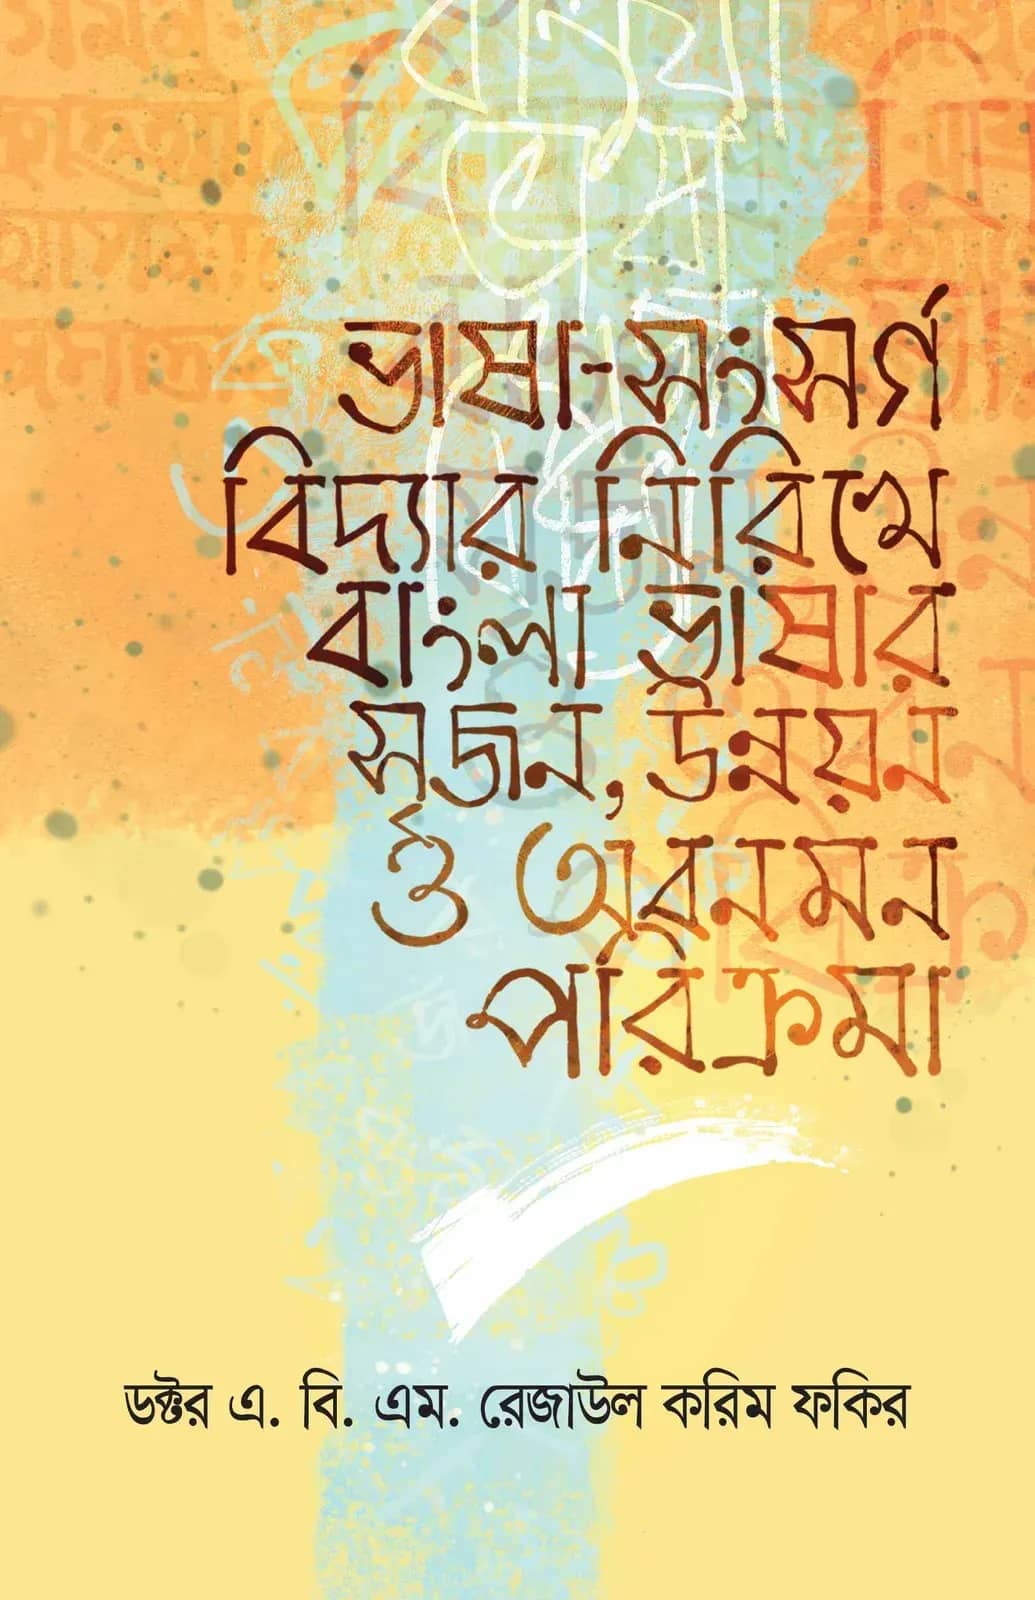 ভাষা-সংসর্গ
বিদ্যার নিরিখে
বাংলা ভাষার
সৃজন, উন্নয়ন
ও অবনমন
পরিক্রমা
ডক্টর এ. বি. এম. রেজাউল করিম ফকির